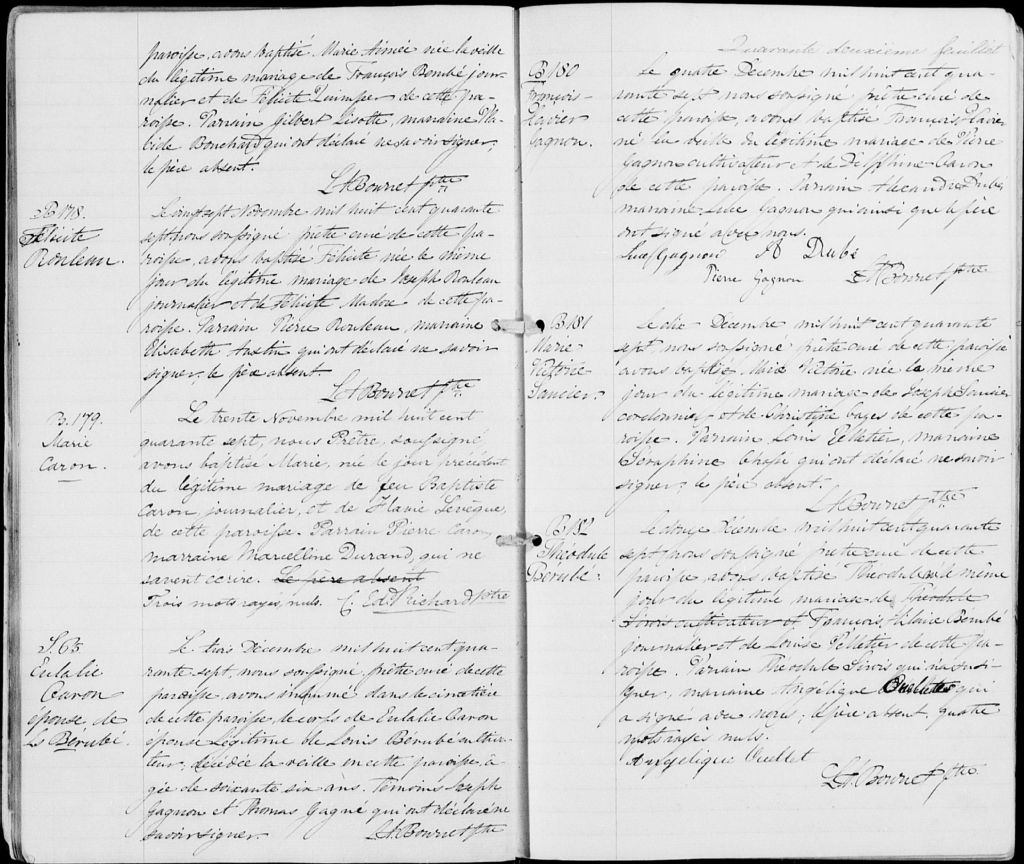 paroisse, avons baptisé Marie Aimée née la veille
du légitime mariage de François Bérubé jour-
nalier et de Félicité Quimper de cette pa-
roisse. Parrain Gilbert Lisotte, marraine Pla-
cide Bouchard qui ont déclaré ne savoir signer,
le père absent.
LA Bourret ptre
B 178.
Félicité
Rouleau.
Le vingt sept Novembre mil huit cent quarante
sept nous soussigné prêtre curé de cette pa-
roisse avons baptisé Félicité née le même
jour du légitime mariage de Joseph Rouleau
journalier et de Félicité Madore de cette pa-
roisse. Parrain Pierre Rouleau, marraine
Elisabeth Austin qui ont déclaré ne savoir
signer, le père absent.
LA Bourret ptre
B. 179.
Marie
Caron.
Le trente Novembre mil huit cent
quarante sept, nous Prêtre, soussigné
avons baptisé Marie, née le jour précédent
du légitime mariage de feu Baptiste
Caron, journalier, et de Flavie Levêsque,
de cette paroisse. Parrain Pierre Caron,
marraine Marcelline Durand, qui ne
savent écrire. Le père absent
Trois mots rayés, nuls. C. Ed. Richard ptre
S. 63
Eulalie
Caron
épouse de
Ls Bérubé.
Le trois Décembre mil huit cent qua-
rante sept, nous soussigné prêtre curé de cette
paroisse, avons inhumé dans le cimetière
de cette paroisse le corps de Eulalie Caron
épouse légitime de Louis Bérubé cultiva-
teur, décédée la veille en cette paroisse, â-
gée de soixante six ans. Témoins Joseph
Gagnon et Thomas Gagné qui ont déclaré ne
savoir signer.
LA Bourret ptre
Quarante deuxième feuillet
B 180
François-
Xavier
Gagnon.
Le quatre Décembre mil huit cent qua-
rante sept nous soussigné prêtre curé de
cette paroisse, avons baptisé François Xavier
né la veille du légitime mariage de Pierre
Gagnon cultivateur et de Delphine Caron
de cette paroisse. Parrain Alexandre Dubé,
marraine Luce Gagnon qui ainsi que le père
ont signé avec nous.
Luce Gagnon A Dubé
Pierre Gagnon LA Bourret ptre
B 181
Marie
Victoire
Saucier.
Le dix Décembre mil huit cent quarante
sept, nous soussigné prêtre curé de cette paroisse
avons baptisé Marie Victoire née le même
jour du légitime mariage de Joseph Saucier
cordonnier et de Christine de cette pa-
roisse. Parrain Louis Pelletier, marraine
Séraphine Chassé qui ont déclaré ne savoir
signer; le père absent.
LA Bourret ptre
B 182
Théodule
Bérubé.
Le douze Décembre mil huit cent quarante
sept nous soussigné prêtre curé de cette
paroisse avons baptisé Théodule né le même
jour du légitime mariage de Théodule
Sirois cultivateur et François Hilaire Bérubé
journalier et de Louise Pelletier de cette pa-
roisse. Parrain Théodule Sirois qui n'a su si-
gner, marraine Angélique Ouellette qui
a signé avec nous; le père absent, quatre
mots rayés nuls.
Angélique Ouellet
LA. Bourret ptre